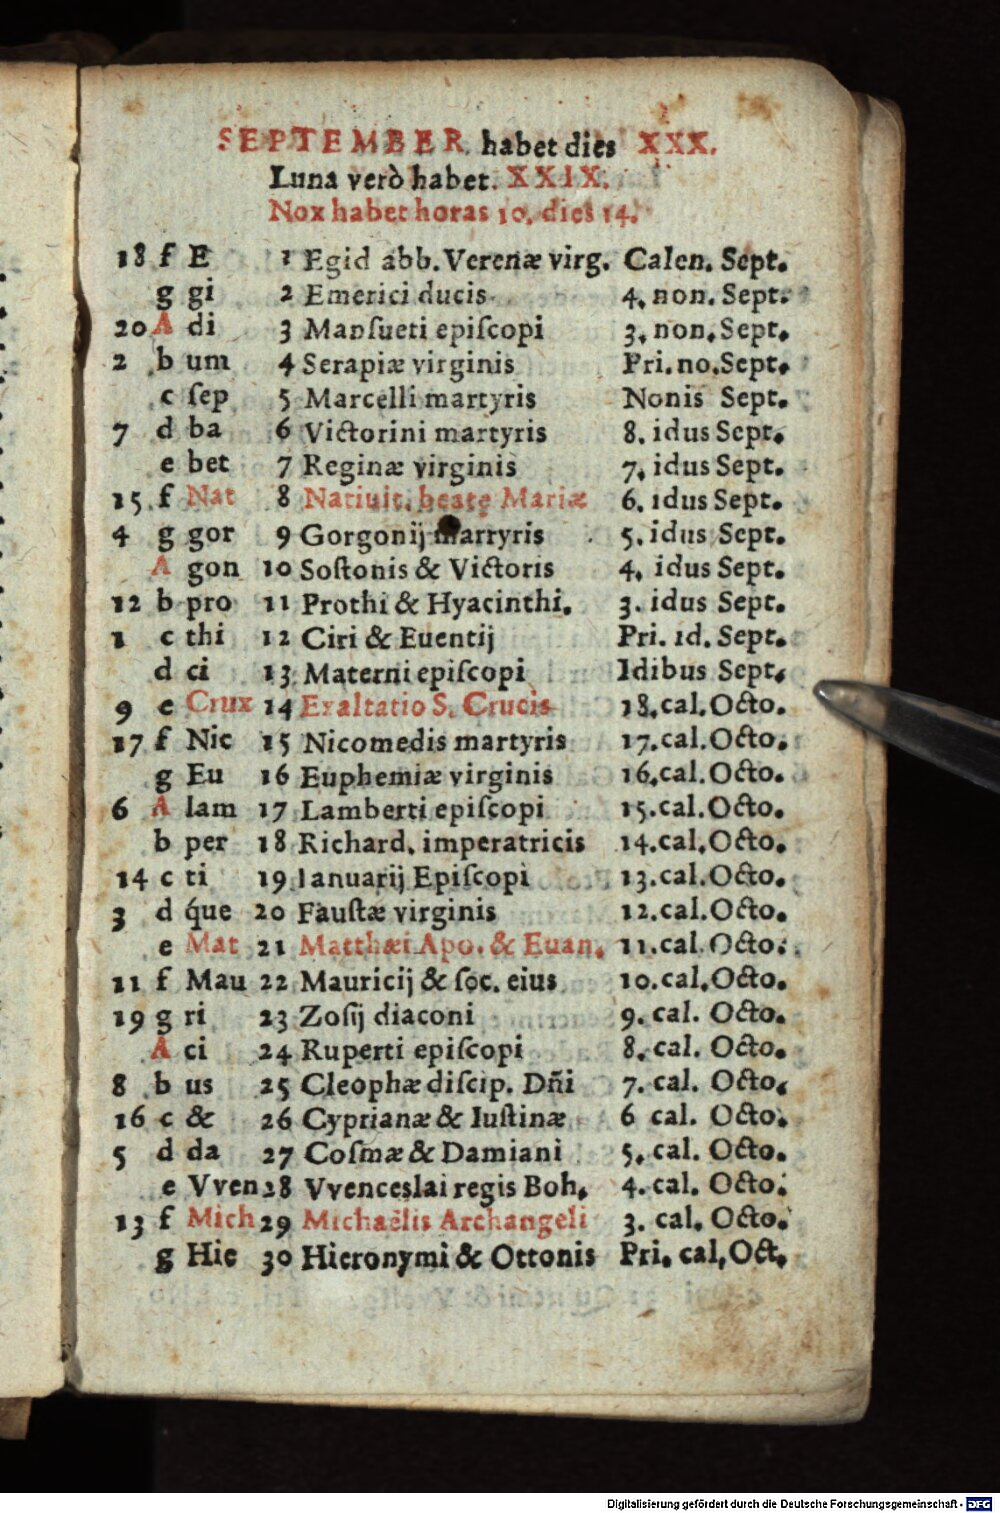 SEPTEMBER habet dies XXX.
Luna verò habet. XXIX.
Nox habet horas 10. dies 14.
18 f E 1 Egid abb. Verenæ virg. Calen. Sept.
g gi 2 Emerici ducis 4. non. Sept.
20 A di 3 Manſueti epiſcopi 3. non. Sept.
2 b um 4 Serapiæ virginis Pri. no. Sept.
c ſep 5 Marcelli martyris Nonis Sept.
7 d ba 6 Victorini martyris 8. idus Sept.
e bet 7 Reginæ virginis 7. idus Sept.
15 f Nat 8 Natiuit. beatę Mariæ 6. idus Sept.
4 g gor 9 Gorgonij martyris 5. idus Sept.
A gon 10 Soſtonis & Victoris 4. idus Sept.
12 b pro 11 Prothi & Hyacinthi. 3. idus Sept.
1 c thi 12 Ciri & Euentij Pri. id. Sept.
d ci 13 Materni epiſcopi Idibus Sept.
9 e Crux 14 Exaltatio S. Crucis 18. cal. Octo.
17 f Nic 15 Nicomedis martyris 17. cal. Octo.
g Eu 16 Euphemiæ virginis 16. cal. Octo.
6 A lam 17 Lamberti epiſcopi 15. cal. Octo.
b per 18 Richard. imperatricis 14. cal. Octo.
14 c ti 19 Ianuarij Epiſcopi 13. cal. Octo.
3 d q́ue 20 Fauſtæ virginis 12. cal. Octo.
e Mat 21 Matthæi Apo. & Euan. 11. cal. Octo.
11 f Mau 22 Mauricij & ſoc. eius 10. cal. Octo.
19 g ri 23 Zoſij diaconi 9. cal. Octo.
A ci 24 Ruperti epiſcopi 8. cal. Octo.
8 b us 25 Cleophæ diſcip. Dñi 7. cal. Octo.
16 c & 26 Cyprianæ & Iuſtinæ 6 cal. Octo.
5 d da 27 Coſmæ & Damiani 5. cal. Octo.
e Vven 28 Vvenceslai regis Boh. 4. cal. Octo.
13 f Mich 29 Michaëlis Archangeli 3. cal. Octo.
g Hie 30 Hieronymi & Ottonis Pri. cal. Oct.
Digitalisierung gefördert durch die Deutsche Forschungsgemeinschaft - DFG